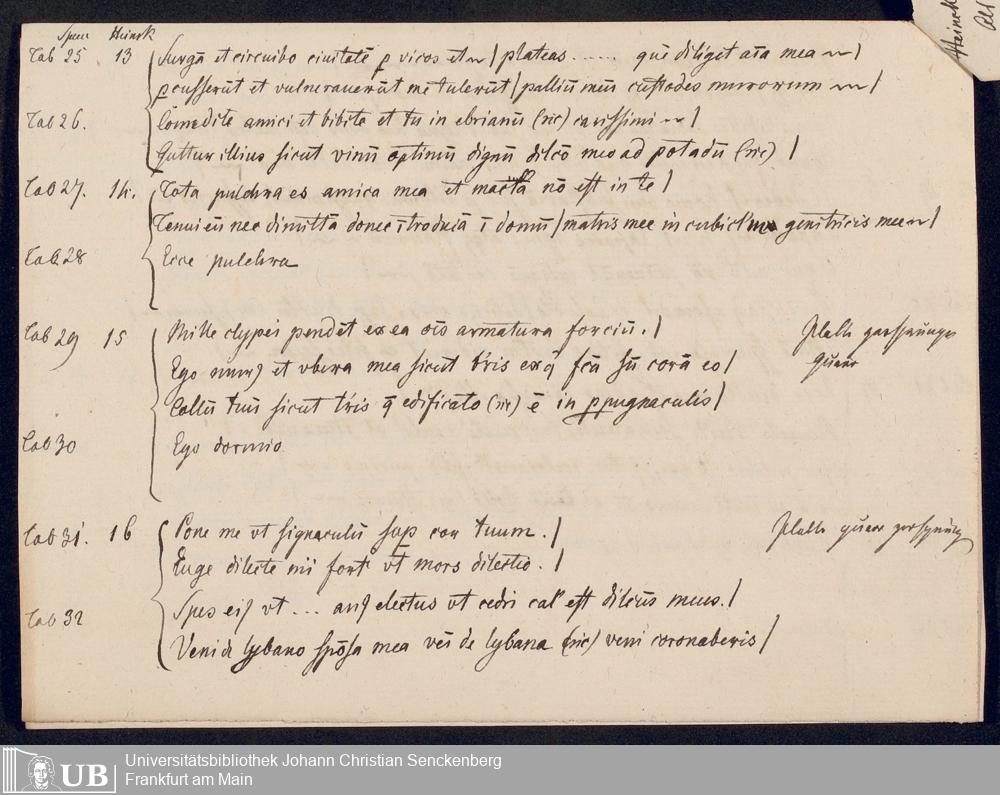 Heinek
Spen Heinek
Tab 25 13 Surgā et circuibo ciuitatē ꝑ vicos et ~ | plateas ...... quē diligit aīa mea ~ |
ꝑcusserūt et vulnerauerūt me tulerūt | palliū meū custodes murorum ~ |
Tab 26. Comedite amici et bibite et tu in ebrianū (sic) carissimi ~ |
Guttur illius sicut vinū optimū dignū dilcō meo ad potadū (sic) |
Tab 27. 14. Tota pulchra es amica mea et macła nō est in te |
Tenui eū nec dimittā donec ītroducā ī domū | matris mee in cubicl'um genitricis mee ~ |
Tab 28 Ecce pulchra
Tab 29 15 Mille clypei pendēt ex ea oīs armatura forciū. |
Ego murꝰ et vbera mea sicut tr'is ex q̄ fcā sū corā eo |
Collū tuū sicut tr'is q̄ edificato (sic) ē in ꝓpugnaculis |
Platte
quaer
Tab 30 Ego dormio
Tab 31. 16 Pone me vt signaculū suꝑ cor tuum. |
Platte quaer
Euge dilecte mi fort' vt mors dilectio. |
Tab 32 Spes eiꝰ vt ... anꝰ electus vt cedri tal' est dilcūs meus. |
Veni d lybano spōsa mea veī de lybana (sic) veni coronaberis |
UB
Universitätsbibliothek Johann Christian Senckenberg
Frankfurt am Main